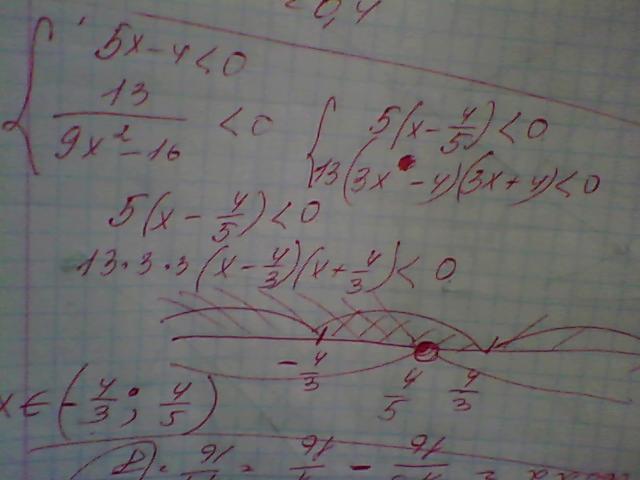 0,4
{ 5x-4<0
13/(9x²-16) <0
{ 5(x-4/5)<0
13(3x-4)(3x+4)<0
5(x-4/5)<0
13·3·3(x-4/3)(x+4/3)<0
-4/3 4/5 4/3
x∈(-4/3; 4/5)